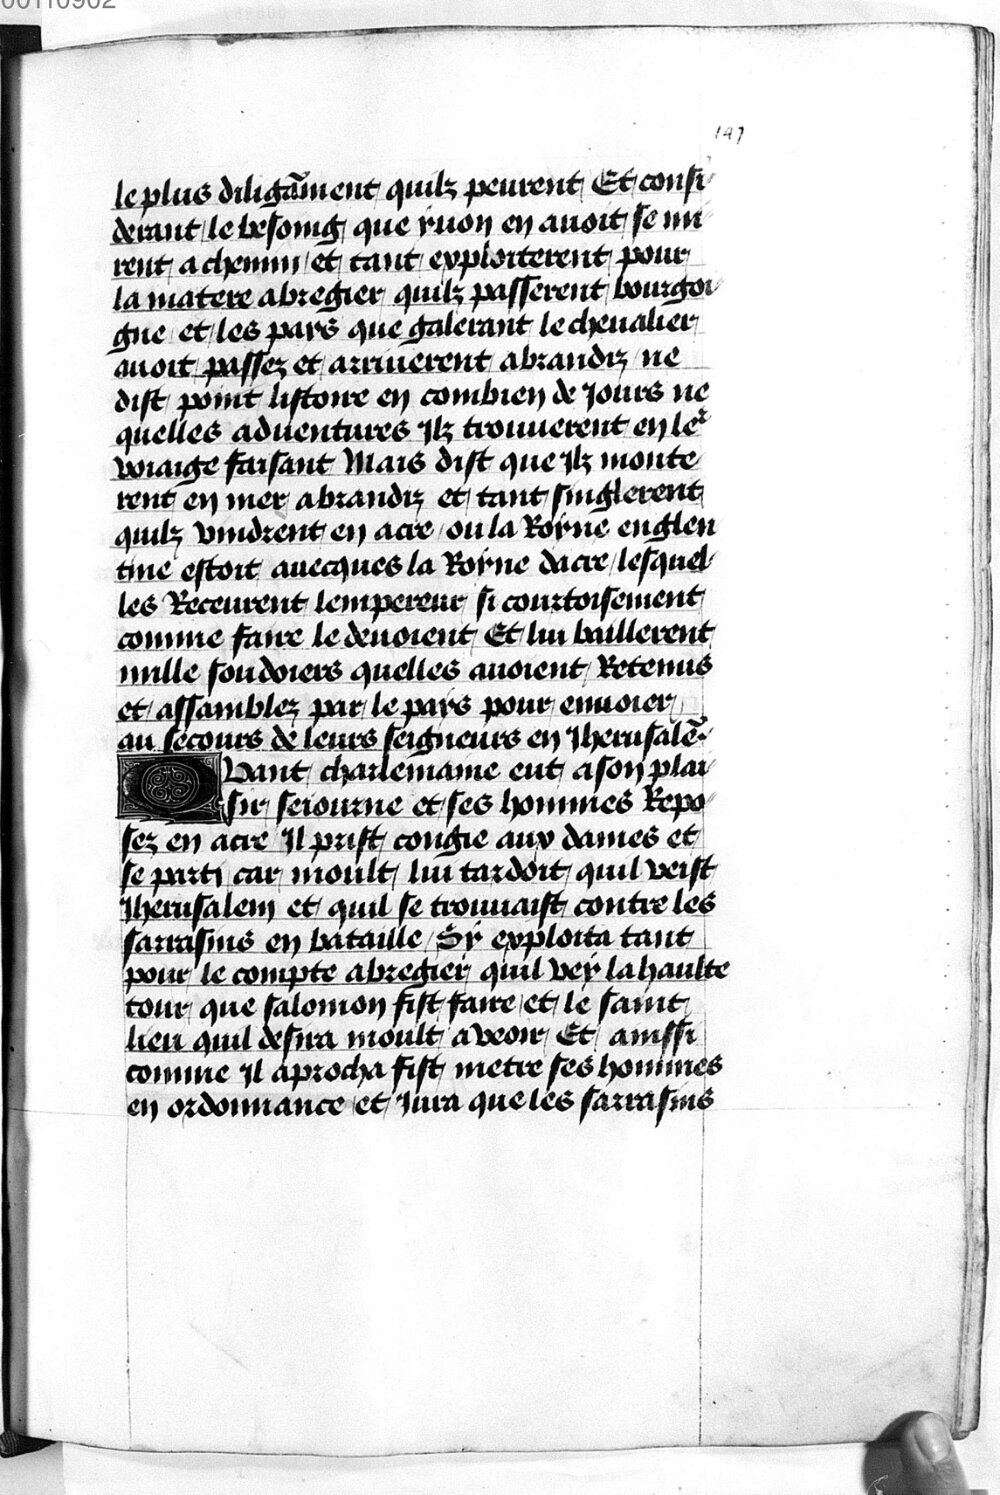 00110902
147
le plus diligãment quilz peurent Et consi
derant le besoing que yuon en auoit se mi
rent a chemin et tant exploiterent pour
la matere abregier quilz passerent bourgoi
gne et les pays que galerant le cheualier
auoit passez et arriuerent abrandiz ne
dist point listoire en combien de Jours ne
quelles aduentures Ilz trouuerent en leʳ
voiaige faisant Mais dist que Ilz monte
rent en mer abrandiz et tant singlerent
quilz vindrent en acre ou la Royne englen
tine estoit auecques la Royne dacre lesquel
les Receurent lempereur si courtoisement
comme faire le deuoient Et lui baillerent
mille soudoiers quelles auoient Retenus
et assamblez par le pays pour enuoier
au secours de leurs seigneurs en Jherusalẽ
Quant charlemaine eut a son plai
sir seiourne et ses hommes Repo
sez en acre Il prist congie aux dames et
se parti car moult lui tardoit quil veist
Jherusalem et quil se trouuaist contre les
sarrasins en bataille Sy exploita tant
pour le compte abregier quil vey la haulte
tour que salomon fist faire et le saint
lieu quil desira moult a veoir Et ainssi
comme Il aprocha fist metre ses hommes
en ordonnance et Jura que les sarrasins